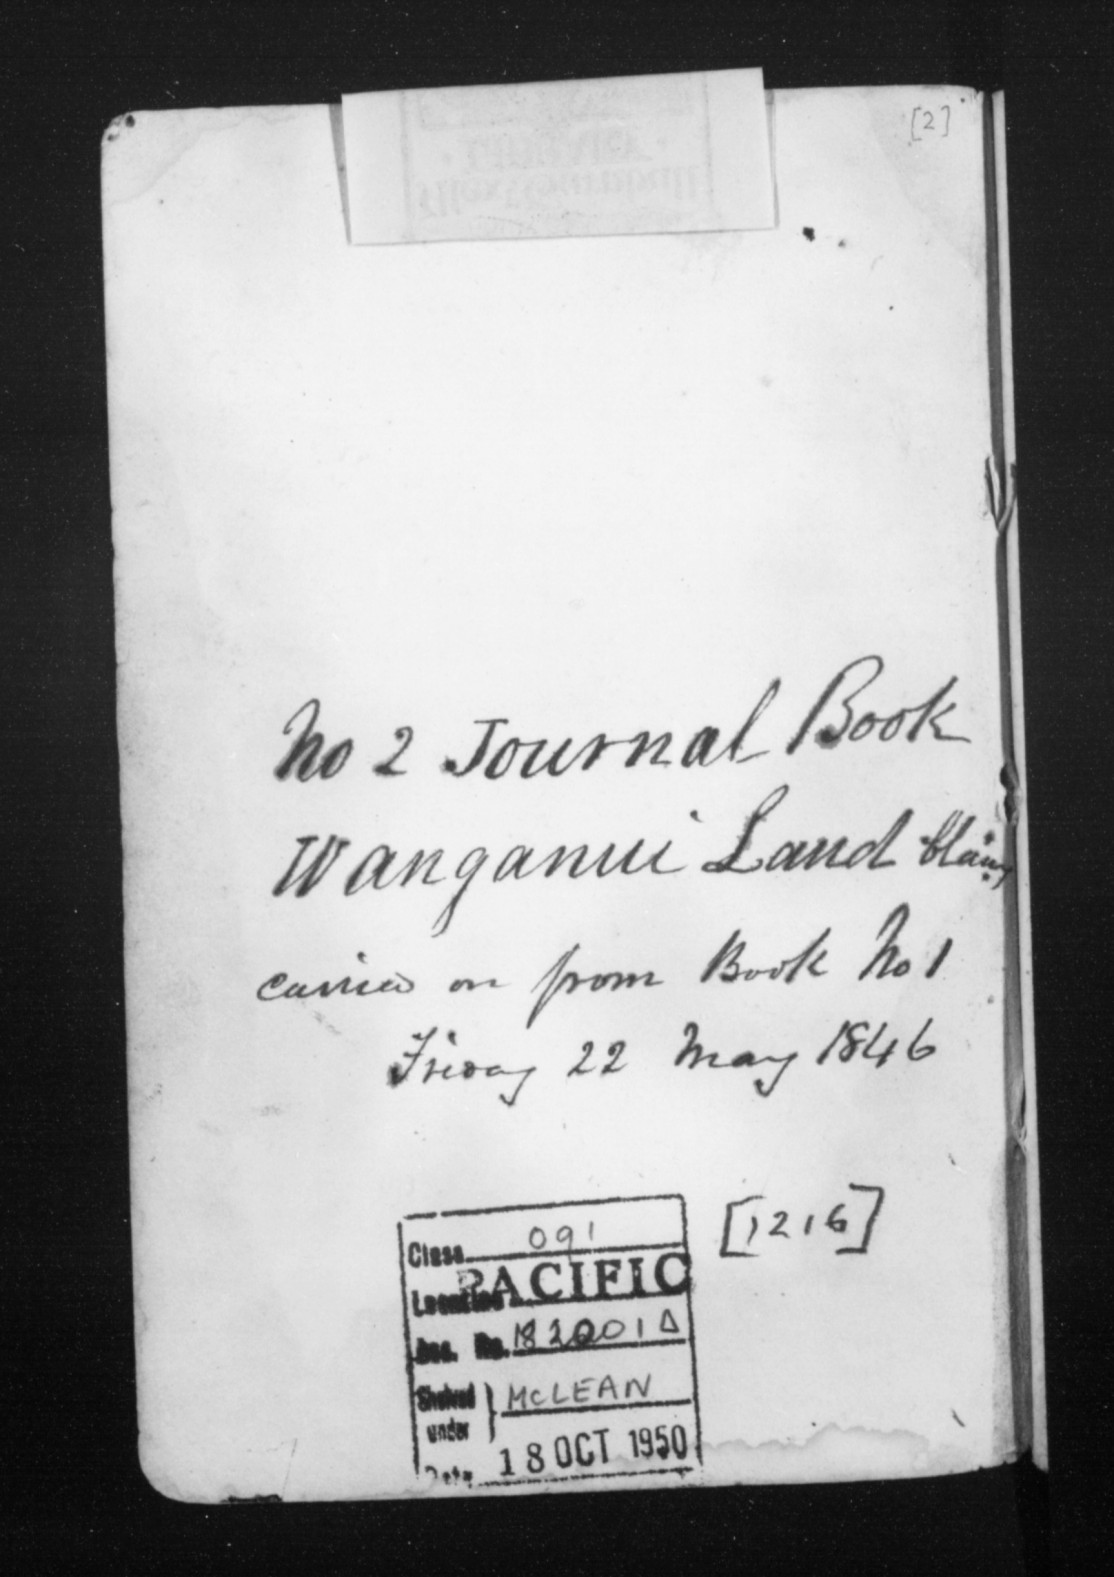 [2]
No 2 Journal Book
Wanganui Land Claims
carried on from Book No 1
Friday 22 May 1846
[1216]
Class 091
Location PACIFIC
Acc. No. 182001 Δ
Shelved under } McLEAN
Date 18 OCT 1950